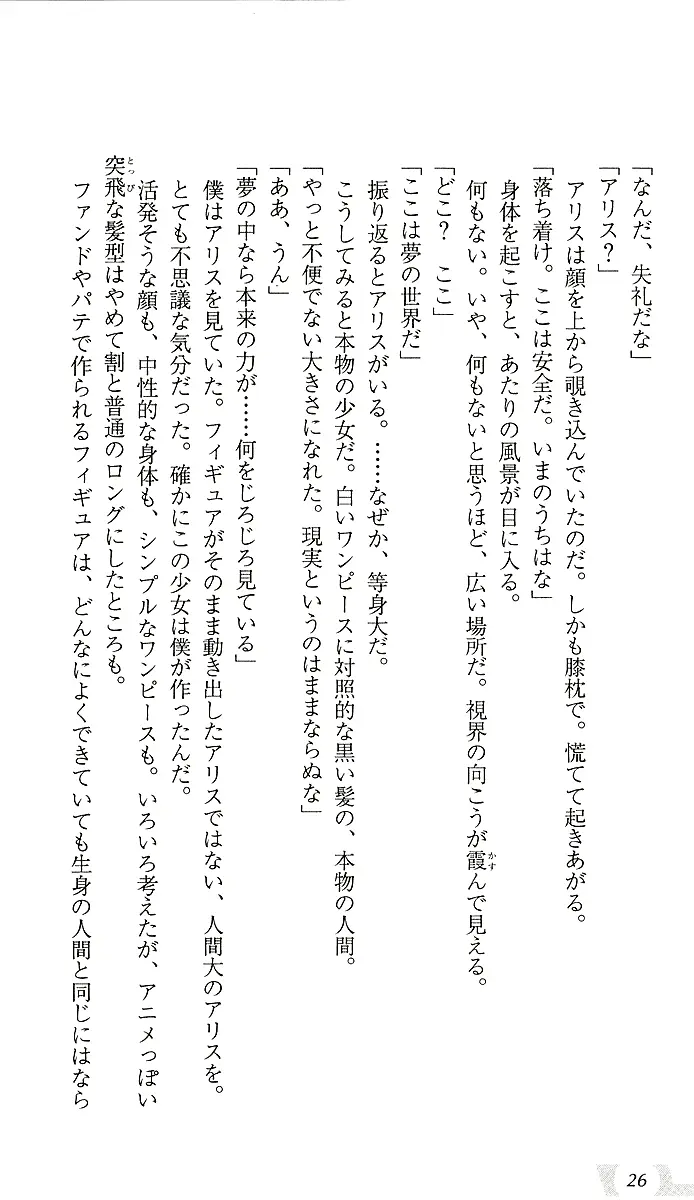 「なんだ、失礼だな」
「アリス？」
アリスは顔を上から覗き込んでいたのだ。しかも膝枕で。慌てて起きあがる。
「落ち着け。ここは安全だ。いまのうちはな」
身体を起こすと、あたりの風景が目に入る。
何もない。いや、何もないと思うほど、広い場所だ。視界の向こうが霞んで見える。
「どこ？　ここ」
「ここは夢の世界だ」
振り返るとアリスがいる。……なぜか、等身大だ。
こうしてみると本物の少女だ。白いワンピースに対照的な黒い髪の、本物の人間。
「やっと不便でない大きさになれた。現実というのはままならぬな」
「ああ、うん」
「夢の中なら本来の力が……何をじろじろ見ている」
僕はアリスを見ていた。フィギュアがそのまま動き出したアリスではない、人間大のアリスを。
とても不思議な気分だった。確かにこの少女は僕が作ったんだ。
活発そうな顔も、中性的な身体も、シンプルなワンピースも。いろいろ考えたが、アニメっぽい
突飛な髪型はやめて割と普通のロングにしたところも。
ファンドやパテで作られるフィギュアは、どんなによくできていても生身の人間と同じにはなら
26